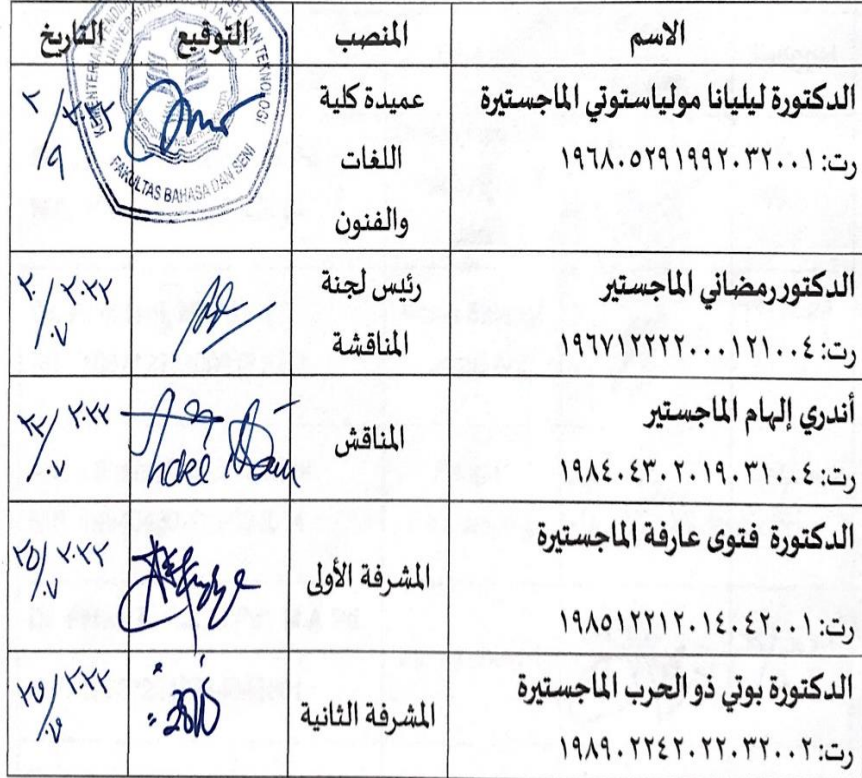 الاسم المنصب التوقيع التاريخ
الدكتورة ليليانا مولياستوتي الماجستيرة
رت: ١٩٦٨٠٥٢٩١٩٩٢٠٣٢٠٠١
عميدة كلية
اللغات
والفنون
FAKULTAS BAHASA DAN SENI
الدكتور رمضاني الماجستير
رت: ١٩٦٧١٢٢٢٢٠٠٠١٢١٠٠٤
رئيس لجنة
المناقشة
أندري إلهام الماجستير
رت: ١٩٨٤٠٤٣٠٢٠١٩٠٣١٠٠٤
المناقش
الدكتورة فتوى عارفة الماجستيرة
رت: ١٩٨٥١٢٢١٢٠١٤٠٤٢٠٠١
المشرفة الأولى
الدكتورة بوتي ذو الحرب الماجستيرة
رت: ١٩٨٩٠٢٢٤٢٠٢٢٠٣٢٠٠٢
المشرفة الثانية